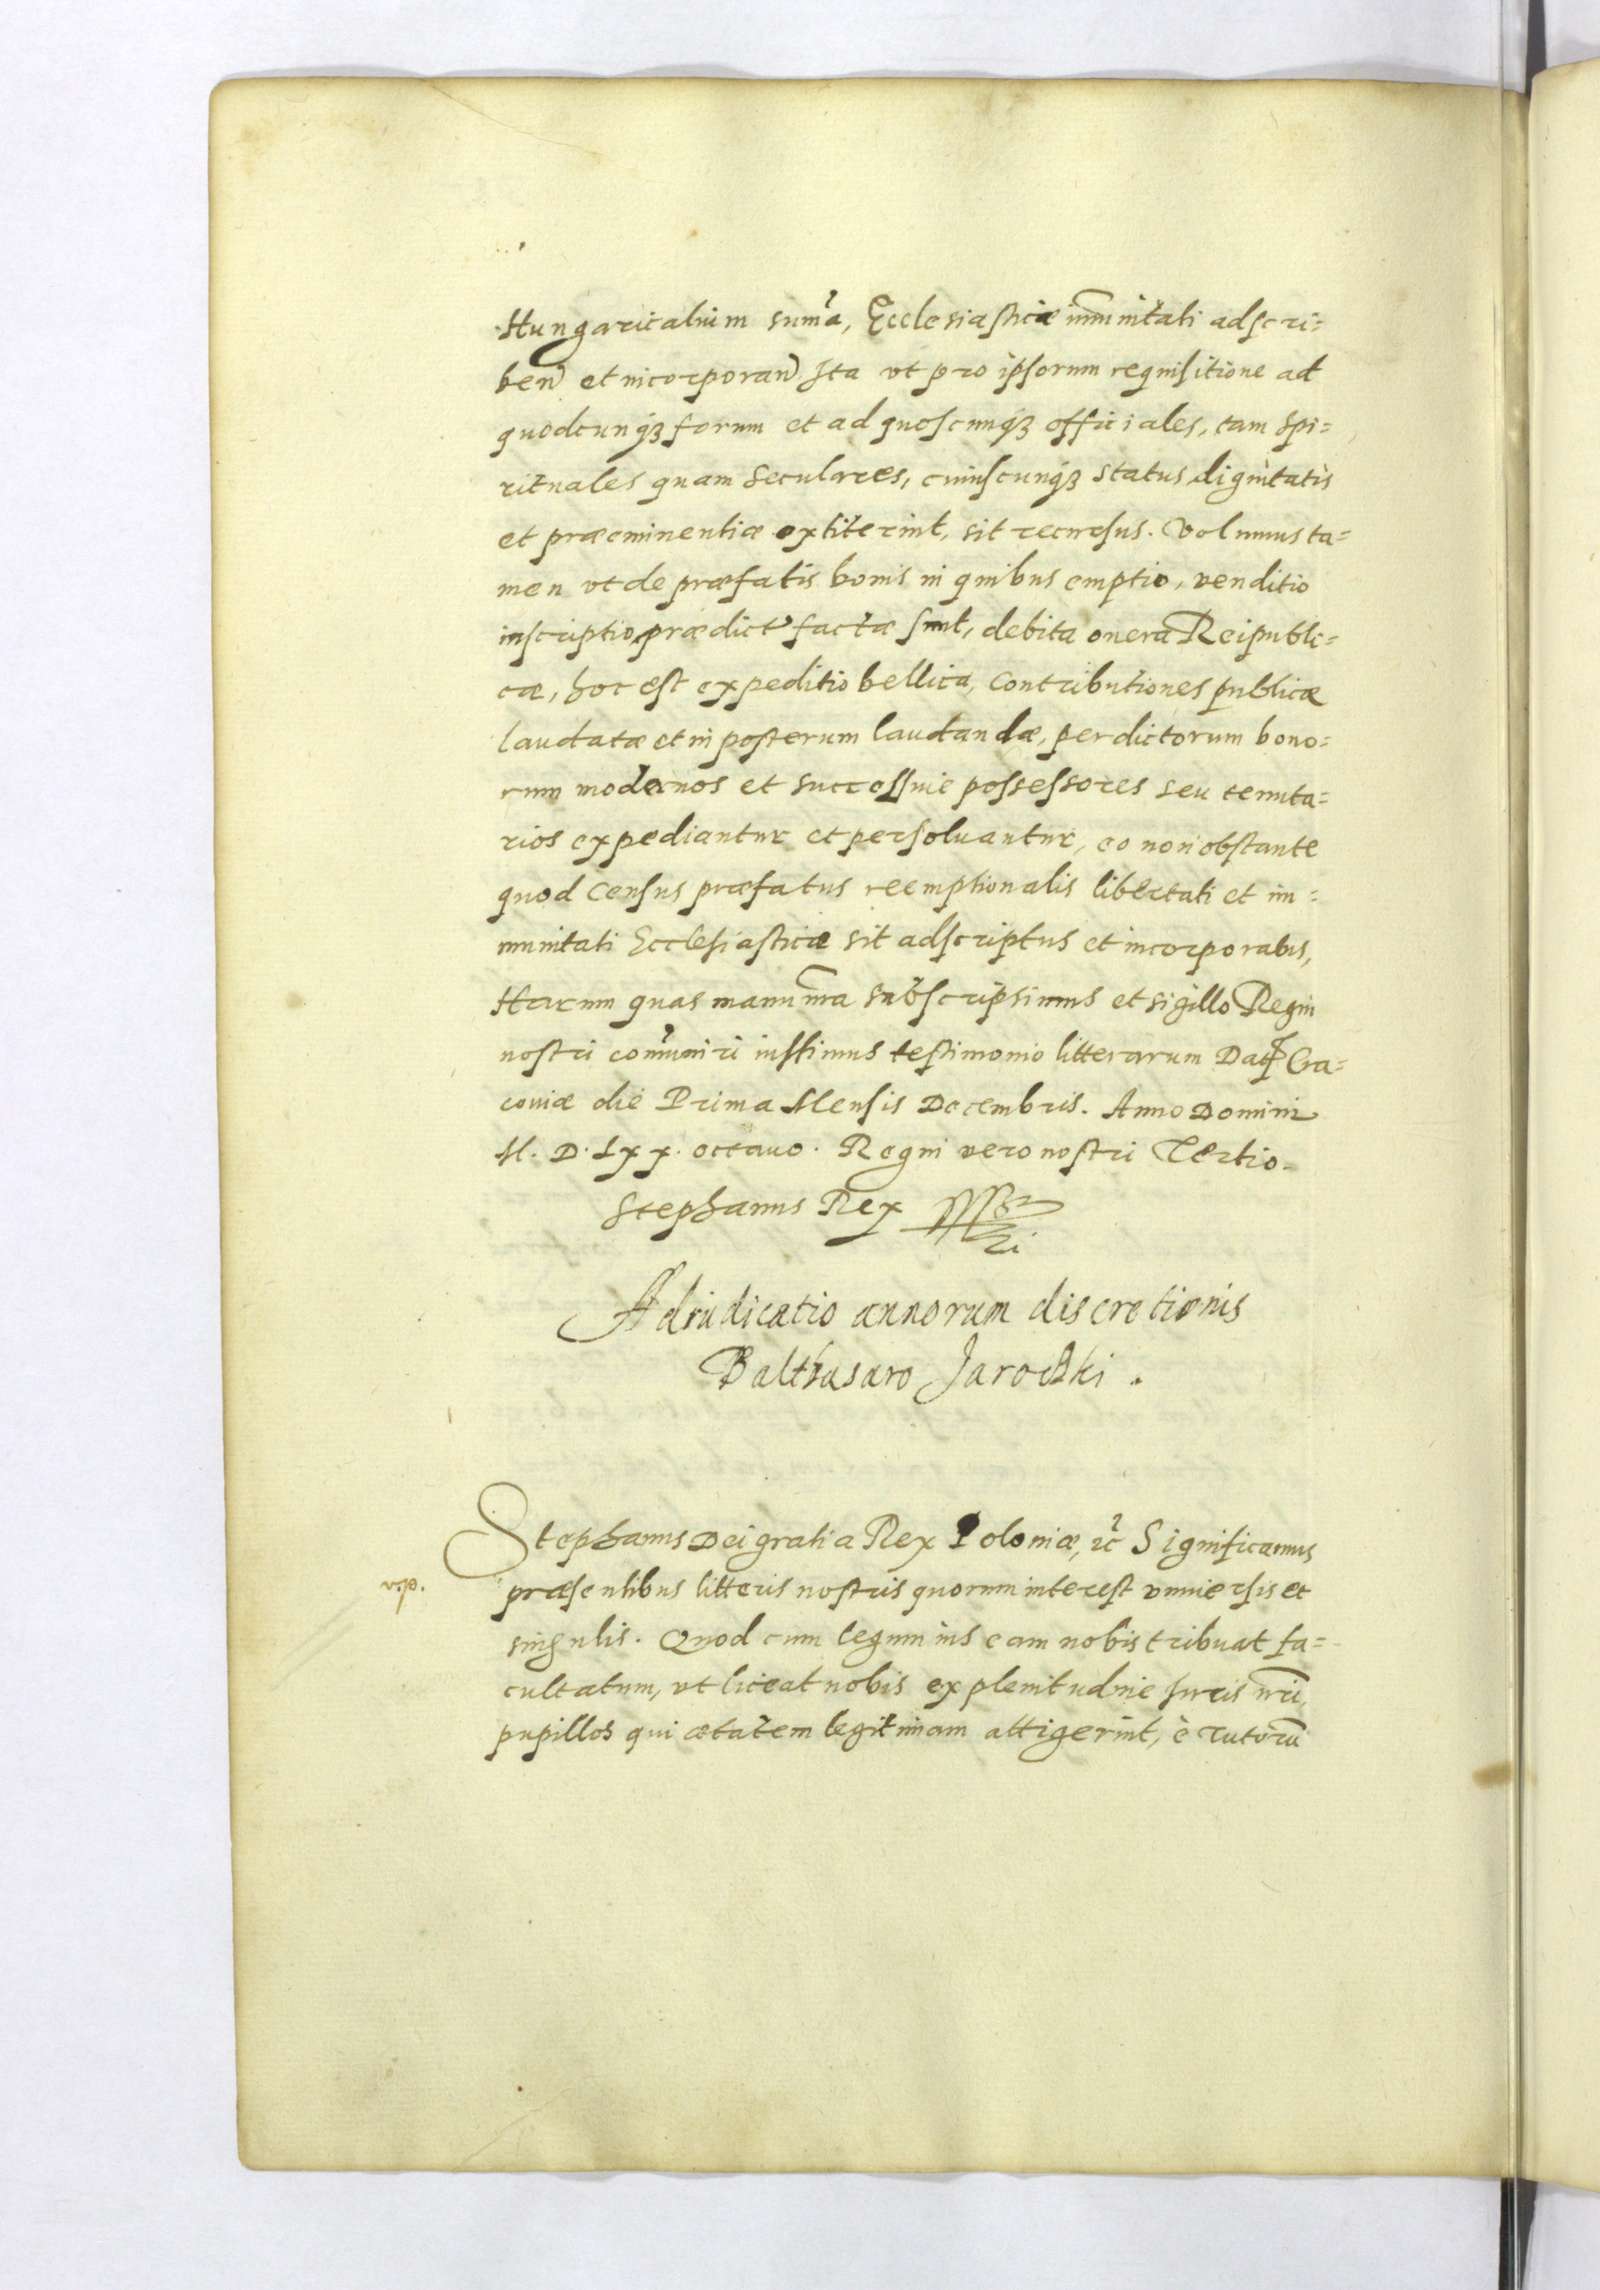 Hungaricaliuim sum̃a, Ecclesiasticæ im̃unitati adscri=
ben̄ et incorporan̄. Ita vt pro ipsorum requisitione ad
quodcunqꝫ forum et ad quoscunqꝫ officiales, tam spi=
rituales quam seculares, cuiuscunqꝫ status dignitatis
et præeminentiæ extiterint, sit recursus. Volumus ta=
men vt de præfatis bonis in quibus emptio, venditio
inscriptio, prædict' factæ sunt, debita onera Reipubli=
cæ, hoc est expeditio bellica, contributiones publicæ
laudatæ et in posterum laudandæ, per dictorum bono=
rum modernos et successiue possessores seu tenuta=
rios expediantur et persoluantur, eo non obstante
quod census præfatus reemptionalis libertati et im=
munitati Ecclesiasticæ sit adscriptus et incorporatus,
Harum quas manu nr̃a subscripsimus et sigillo Regni
nostri com̃uniri iussimus testimonio litterarum Dat̃ Cra=
couiæ die Prima Mensis Decembris. Anno Domini
M. D. Lxx. octauo. Regni vero nostri Tertio.
Stephanus Rex
Adiudicatio annorum discretionis
Balthasaro Jaroczki.
Stephanus Dei gratia Rex Poloniæ, ꝛc̃ Significamus
præsentibus litteris nostris quorum interest vniuersis et
singulis. Quod cum legum ius eam nobis tribuat fa=
cultatum, vt liceat nobis ex plenitudine Iuris nr̃i,
pupillos qui ætatem legitimam attigerint, è tutorũ